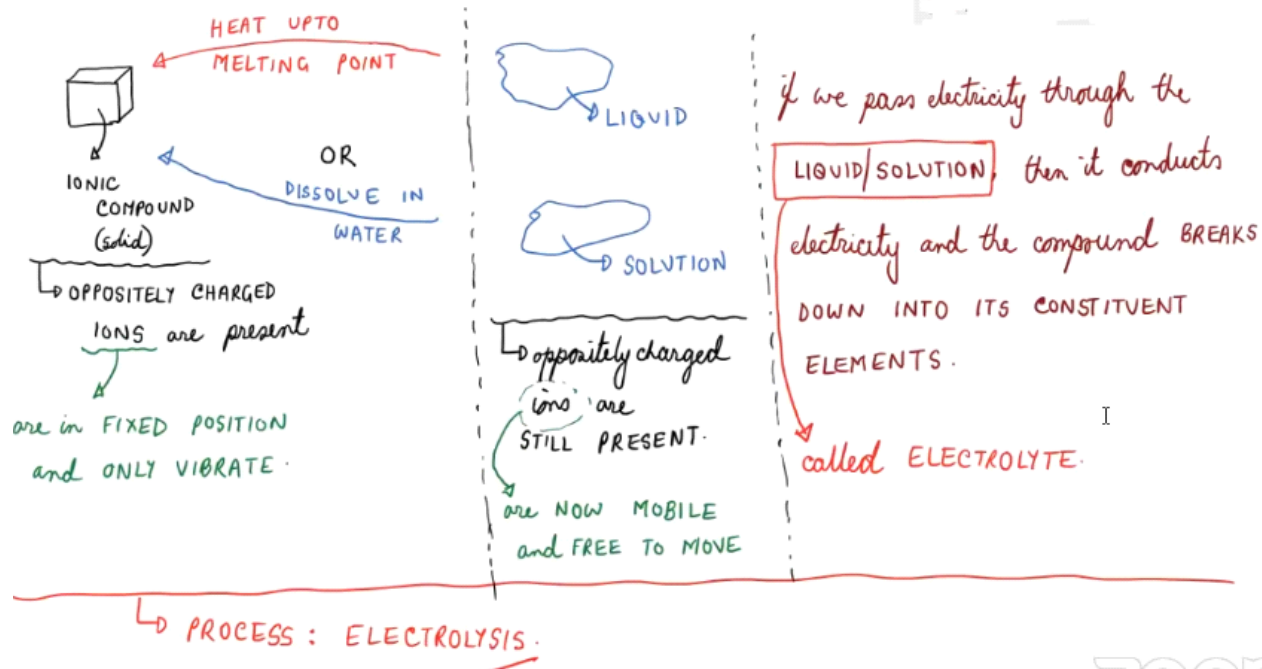 HEAT UPTO
MELTING POINT
OR
DISSOLVE IN
WATER
IONIC
COMPOUND
(solid)
OPPOSITELY CHARGED
IONS are present
are in FIXED POSITION
and ONLY VIBRATE.
LIQUID
SOLUTION
oppositely charged
ions are
STILL PRESENT.
are NOW MOBILE
and FREE TO MOVE
if we pass electricity through the
LIQUID/SOLUTION, then it conducts
electricity and the compound BREAKS
DOWN INTO ITS CONSTITUENT
ELEMENTS.
called ELECTROLYTE.
PROCESS: ELECTROLYSIS.